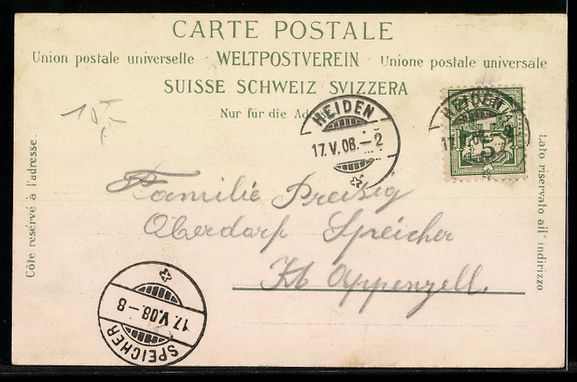 CARTE POSTALE
Union postale universelle · WELTPOSTVEREIN · Unione postale universale
SUISSE SCHWEIZ SVIZZERA
Nur für die
Côte reservé à l'adresse.
Lato riservato all' indirizzo
HEIDEN
17.V.08.-2
HEIDEN
17
5
Familie Preisig
Oberdorf Speicher
Kt Appenzell.
17.V.08.-8
SPEICHER